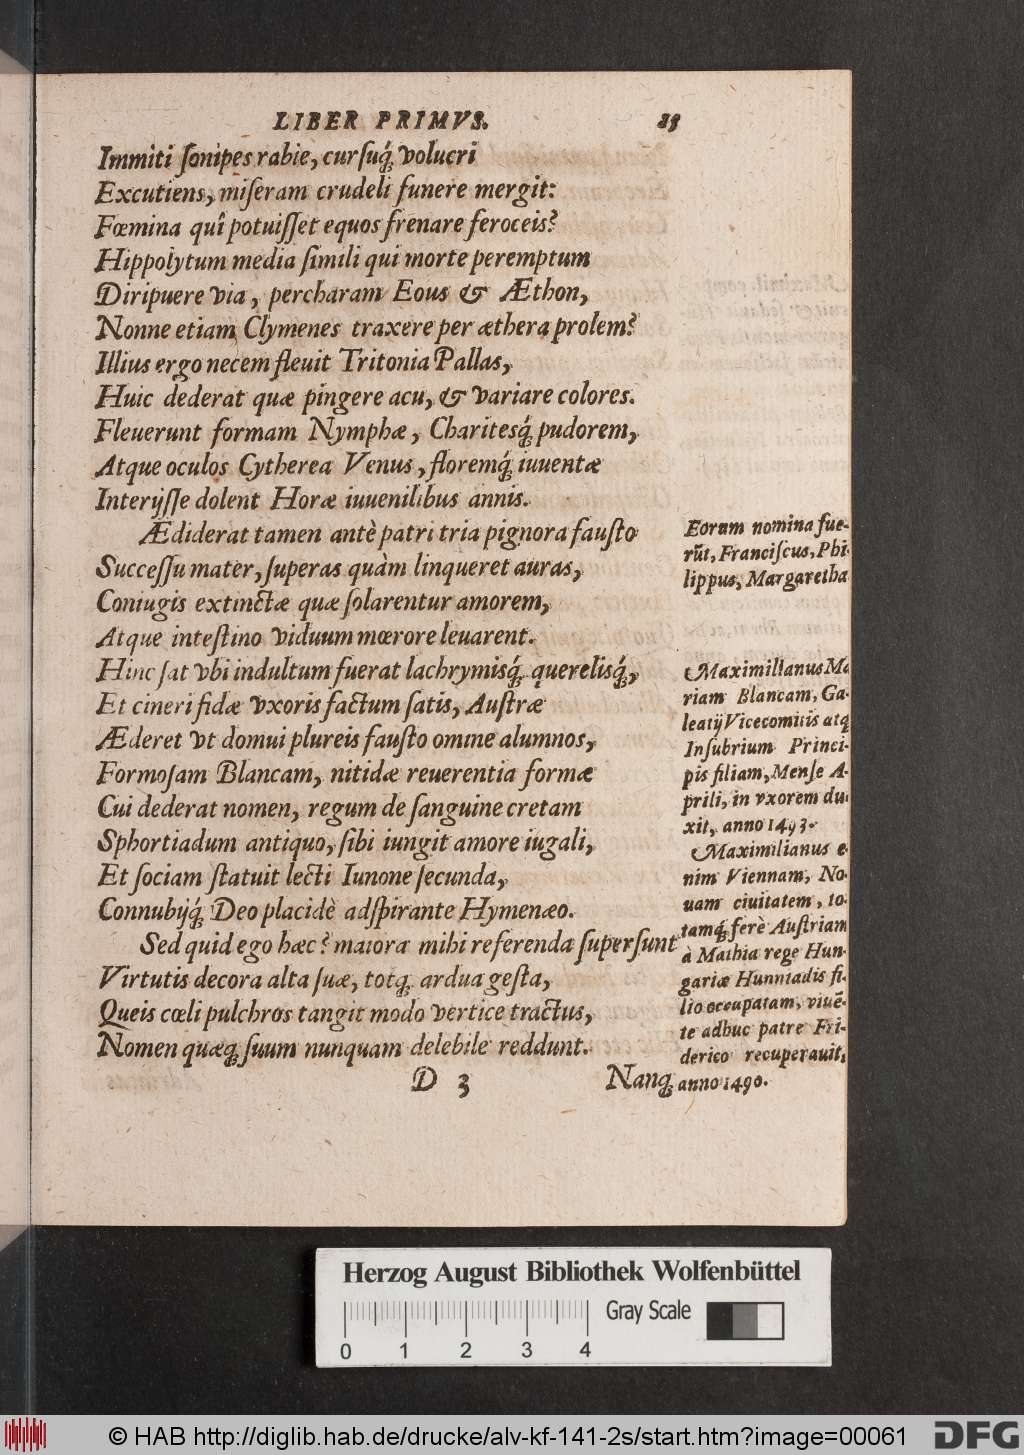 LIBER PRIMVS. 23
Immiti ſonipes rabie, curſuq́ꝫ volucri
Excutiens, miſeram crudeli funere mergit:
Fœmina quî potuiſſet equos frenare feroceis?
Hippolytum media ſimili qui morte peremptum
Diripuere via, percharam Eous & Æthon,
Nonne etiam Clymenes traxere per æthera prolem?
Illius ergo necem fleuit Tritonia Pallas,
Huic dederat quæ pingere acu, & variare colores.
Fleuerunt formam Nymphæ, Charitesq́ꝫ pudorem,
Atque oculos Cytherea Venus, floremq́ꝫ iuuentæ
Interijſſe dolent Horæ iuuenilibus annis.
Ædiderat tamen antè patri tria pignora fauſto
Succeſſu mater, ſuperas quàm linqueret auras,
Coniugis extinctæ quæ ſolarentur amorem,
Atque inteſtino viduum mœrore leuarent.
Hinc ſat vbi indultum fuerat lachrymisq́ꝫ querelisq́ꝫ,
Et cineri fidæ vxoris factum ſatis, Auſtræ
Æderet vt domui plureis fauſto omine alumnos,
Formoſam Blancam, nitidæ reuerentia formæ
Cui dederat nomen, regum de ſanguine cretam
Sphortiadum antiquo, ſibi iungit amore iugali,
Et ſociam ſtatuit lecti Iunone ſecunda,
Connubijq́ꝫ Deo placidè adſpirante Hymenæo.
Sed quid ego hæc? maiora mihi referenda ſuperſunt
Virtutis decora alta ſuæ, totqꝫ ardua geſta,
Queis cœli pulchros tangit modo vertice tractus,
Nomen quæqꝫ ſuum nunquam delebile reddunt.
D 3 Nanqꝫ
Eorum nomina fue-
rũt, Franciſcus, Phi-
lippus, Margaretha
Maximilianus Ma
riam Blancam, Ga-
leatij Vicecomitis atqꝫ
Inſubrium Princi-
pis filiam, Menſe A-
prili, in vxorem du-
xit, anno 1493.
Maximilianus e-
nim Viennam, No-
uam ciuitatem, to-
tamq́ꝫ ferè Auſtriam
à Mathia rege Hun-
gariæ Hunniadis fi-
lio occupatam, viuẽ-
te adhuc patre Fri-
derico recuperauit,
anno 1490.
Herzog August Bibliothek Wolfenbüttel
Gray Scale
0 1 2 3 4
© HAB http://diglib.hab.de/drucke/alv-kf-141-2s/start.htm?image=00061
DFG